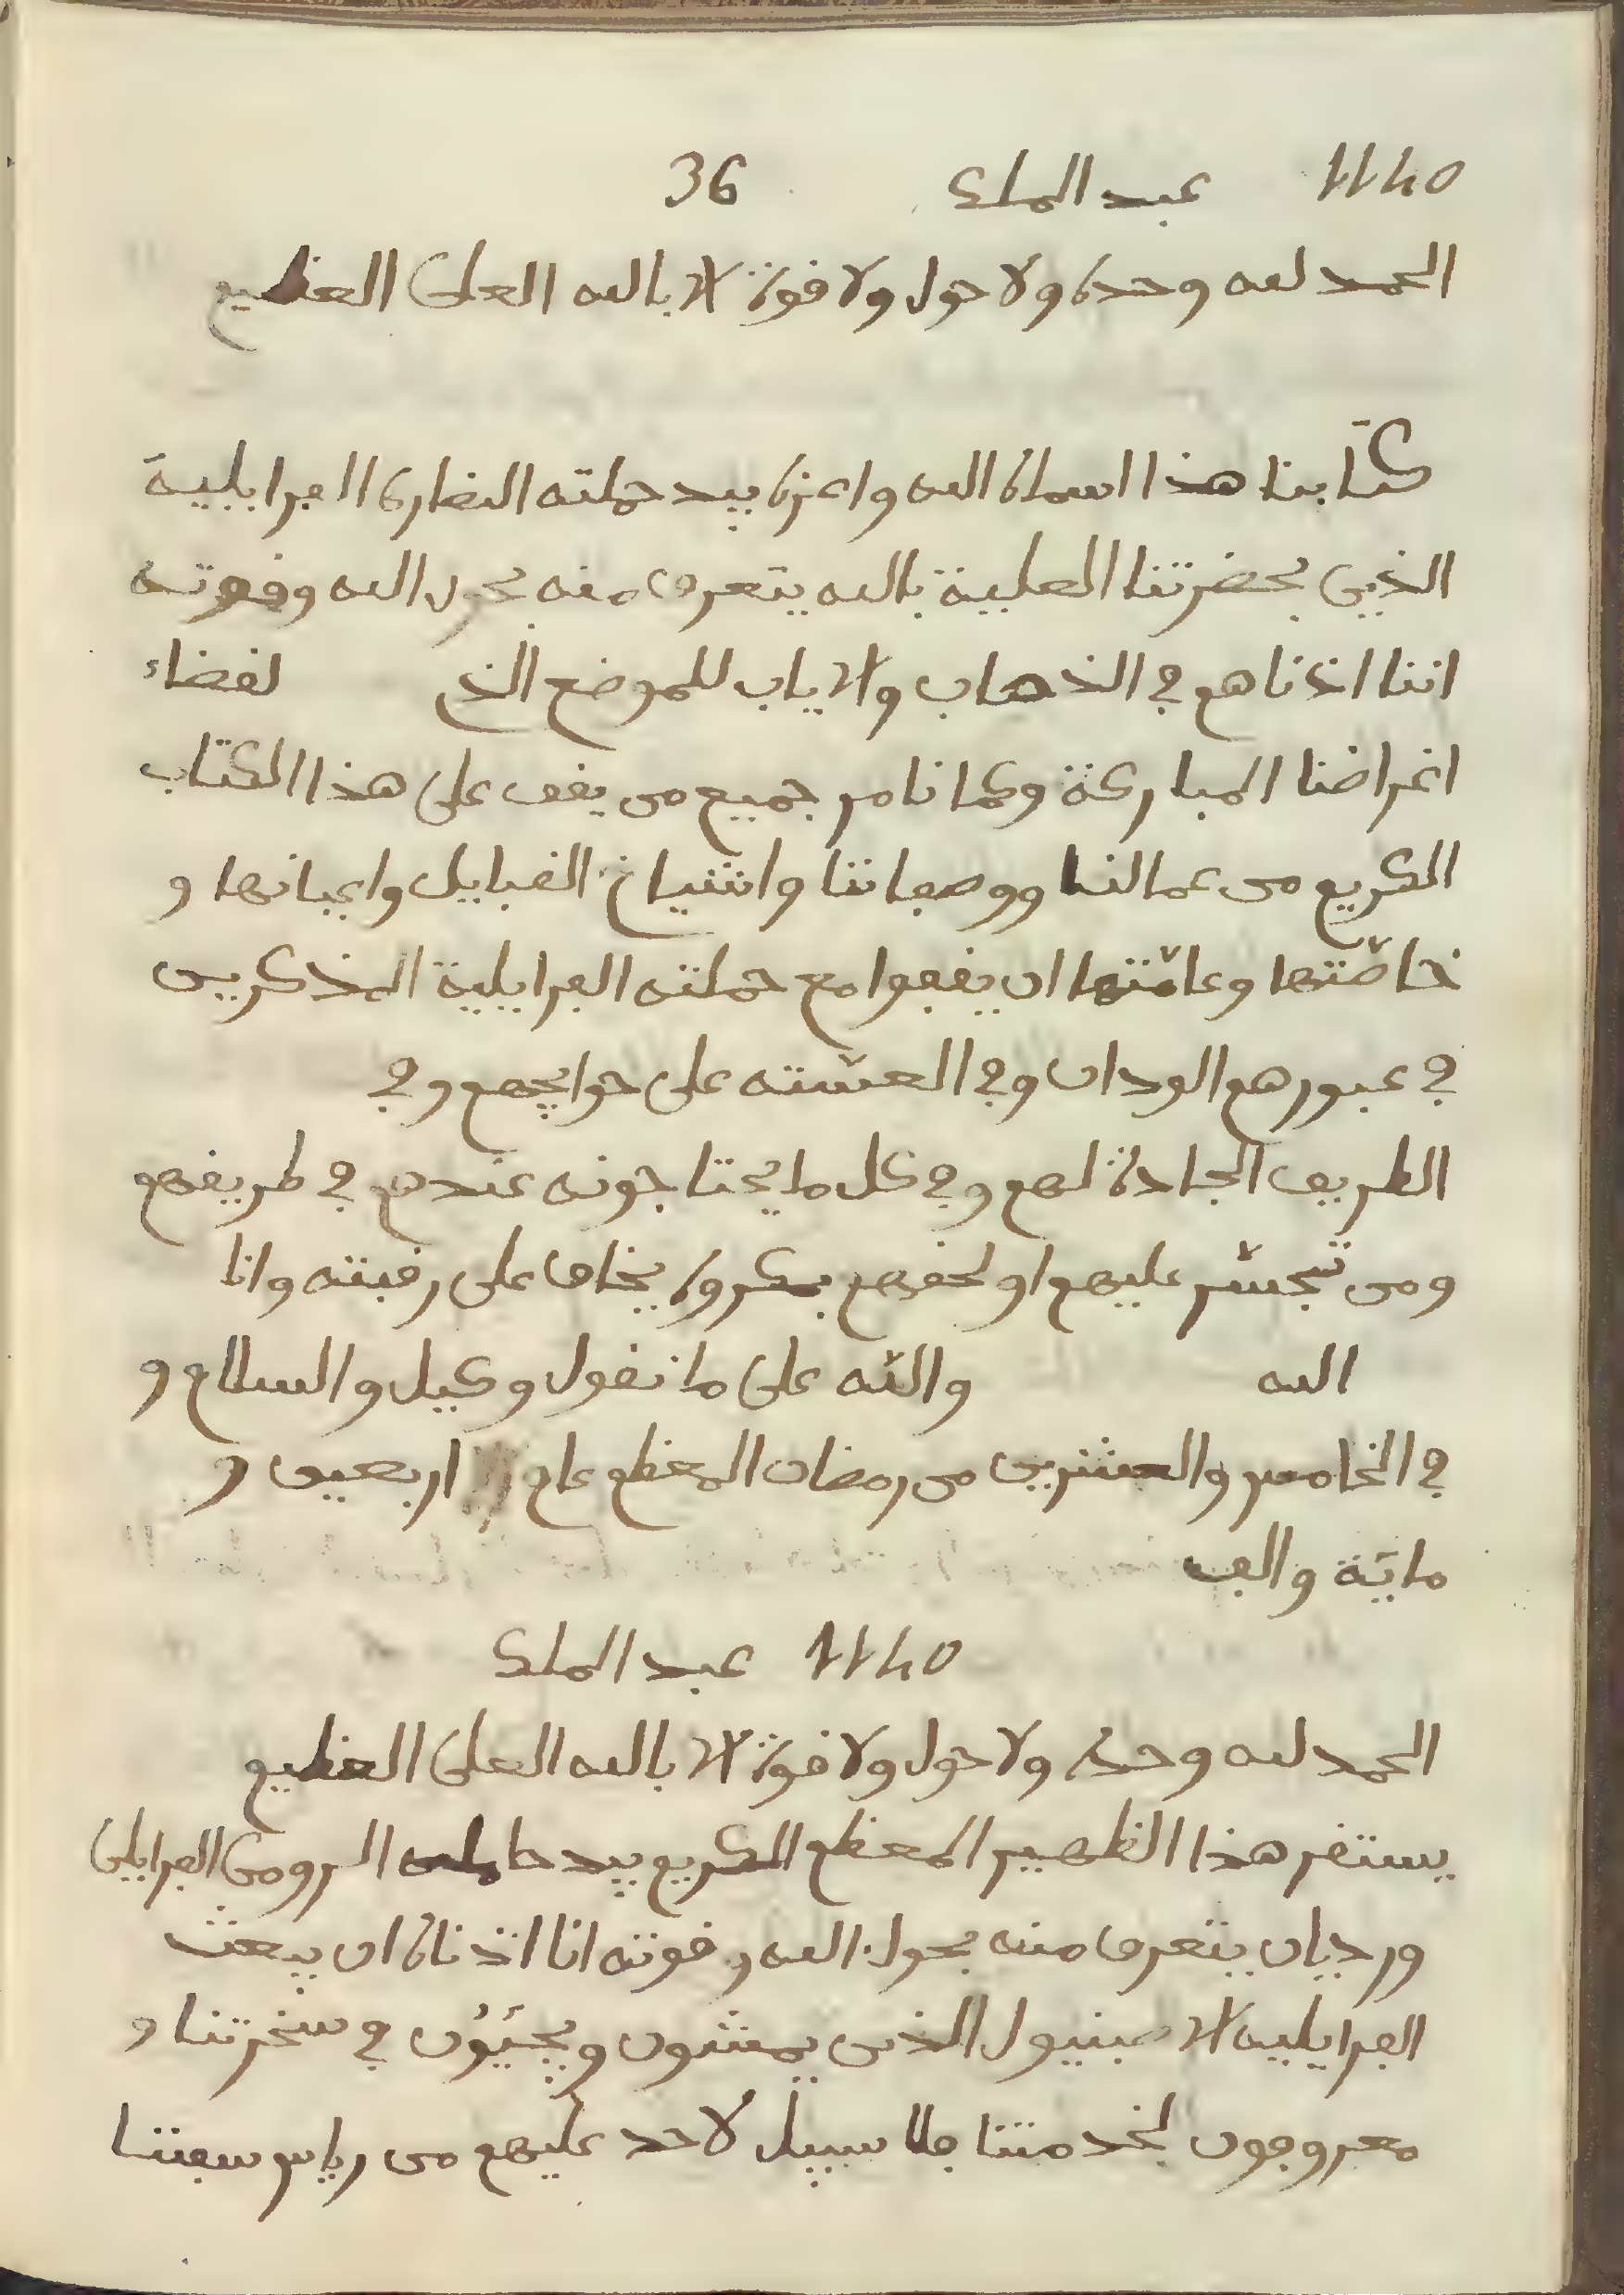 1140 عبد الملك 36
الحمد لله وحده ولا حول ولا قوة الا بالله العلى العظيم
كتابنا هذا اسماه الله واعزه بيد حملته النصارى الفرايلية
الذين بحضرتنا العلية بالله يتعرف منه بحول الله وقوته
اننا اذناهم في الذهاب والاياب للموضع الذي لقضاء
اغراضنا المباركة وكما نامر جميع من يقف على هذا الكتاب
الكريم من عمالنا ووصفاننا واشياخ القبايل واعيانها و
خاصّتها وعامّتها ان يقفوا مع حملته الفرايلية المذكرين
في عبورهم الودان وفي العسّته على حوايجهم وفي
الطريق الجادة لهم وفي كل ما يحتاجونه عندهم في طريقهم
ومن تجسّر عليهم او لحقهم بمكروه يخاف على رقبته وانا
الله والله على ما نقول وكيل والسلام و
في الخامس والعشرين من رمضان المعظم عام اربعين و
ماية والف
1140 عبد الملك
الحمد لله وحده ولا حول ولا قوة الا بالله العلى العظيم
يستقر هذا الظهير المعظم الكريم بيد حامله الرومى الفرايلى
ورديان يتعرف منه بحول الله وقوته انا اذناه ان يبعث
الفرايليه الاصبنيول الذين يمشون ويجيؤن في سخرتنا و
معروفون لخدمتنا فلا سبيل لاحد عليهم من رياس سفننا